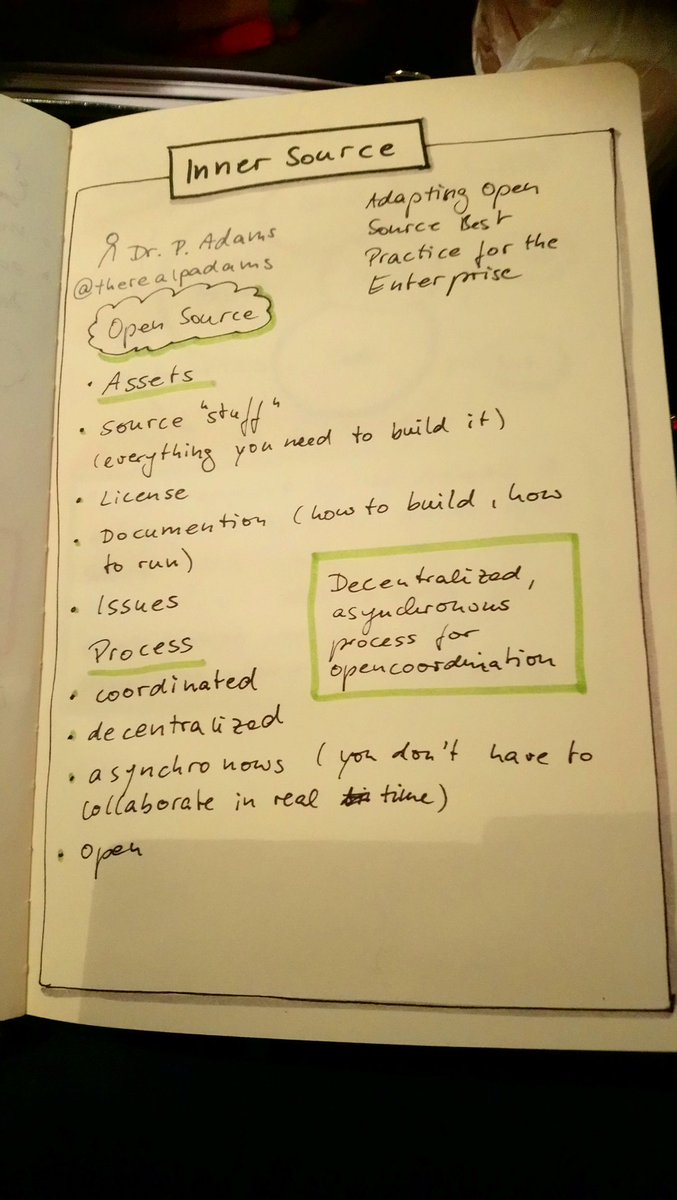 Inner Source
Adapting Open
Source Best
Practice for the
Enterprise
Dr. P. Adams
@therealpadams
Open Source
• Assets
• source "stuff"
(everything you need to build it)
• License
• Documention (how to build, how
to run)
• Issues
Decentralized,
asynchronous
process for
opencoordination
Process
• coordinated
• decentralized
• asynchronows (you don't have to
collaborate in real time)
• open